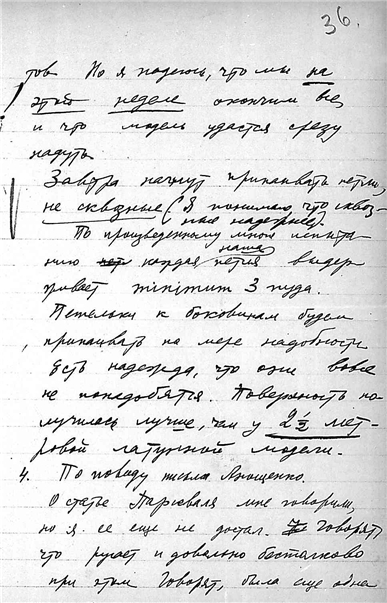 36.
тов Но я надеюсь, что мы на
этой неделе окончим все,
и что модель удастся сразу
надуть
Завтра начнут припаивать петли,
не сквозные (Я понимаю, что сквоз-
ные надежнее).
По произведенному мной испыта-
нию каждая наша петля выдер
живает минимум 3 пуда.
Петельки к боковинам будем
припаивать по мере надобности
Есть надежда, что они вовсе
не понадобятся. Поверхность по
лучилась лучше, чем у 2 1/2 мет-
ровой латунной модели.
4. По поводу письма Анощенко.
О статье Парсеваля мне говорили,
но я ее еще не достал. Говорят,
что ругает и довольно бестолково
при этом Говорят, была еще одна